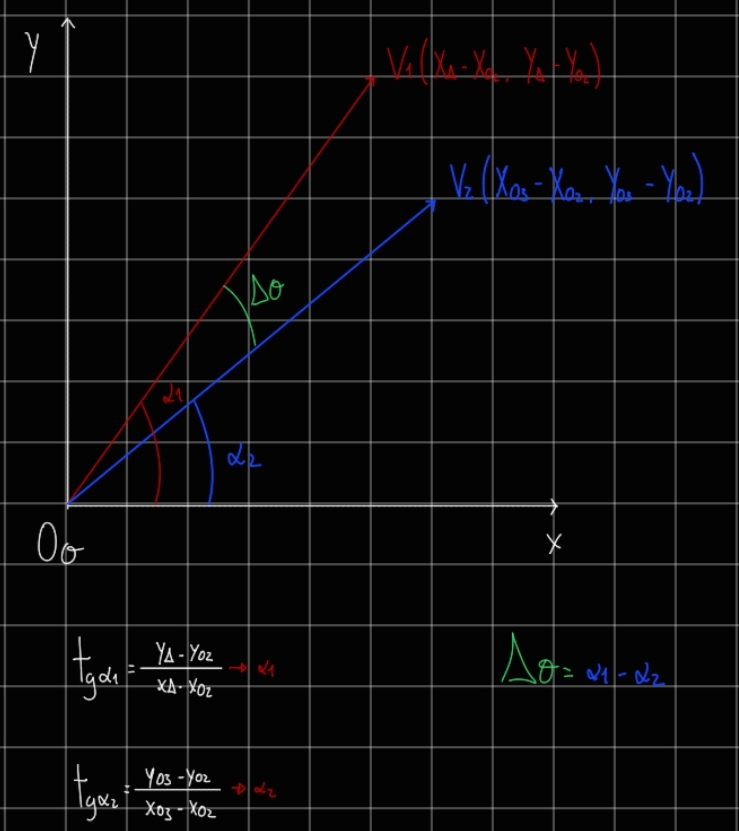 y
V1(XΔ-XO2, YΔ-YO2)
V2(XO3-XO2, YO3-YO2)
Δθ
α1
α2
Oσ
x
tgα1 = yΔ-yO2 / xΔ-xO2 → α1
Δθ = α1 - α2
tgα2 = yO3-yO2 / xO3-xO2 → α2